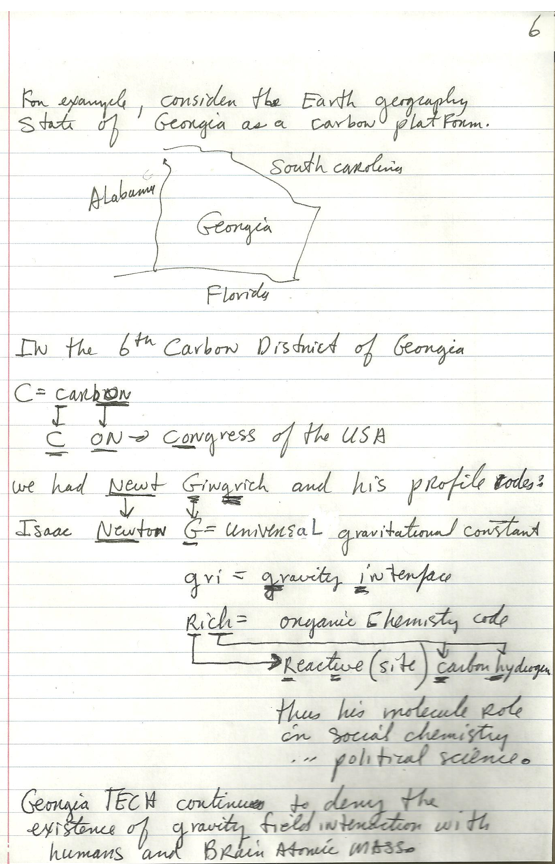 6
For example, consider the Earth geography
State of Georgia as a carbon platform.
South Carolina
Alabama
Georgia
Florida
IN the 6th Carbon District of Georgia
C = carbON
C ON → Congress of the USA
we had Newt Gingrich and his profile codes:
Isaac Newton G = universal gravitational constant
gri = gravity interface
Rich = organic Chemisty code
Reactive (site) carbon hydrogen
thus his molecule role
in social chemistry
... political science.
Georgia TECH continues to deny the
existence of gravity field interaction with
humans and BRain Atomic MASS.